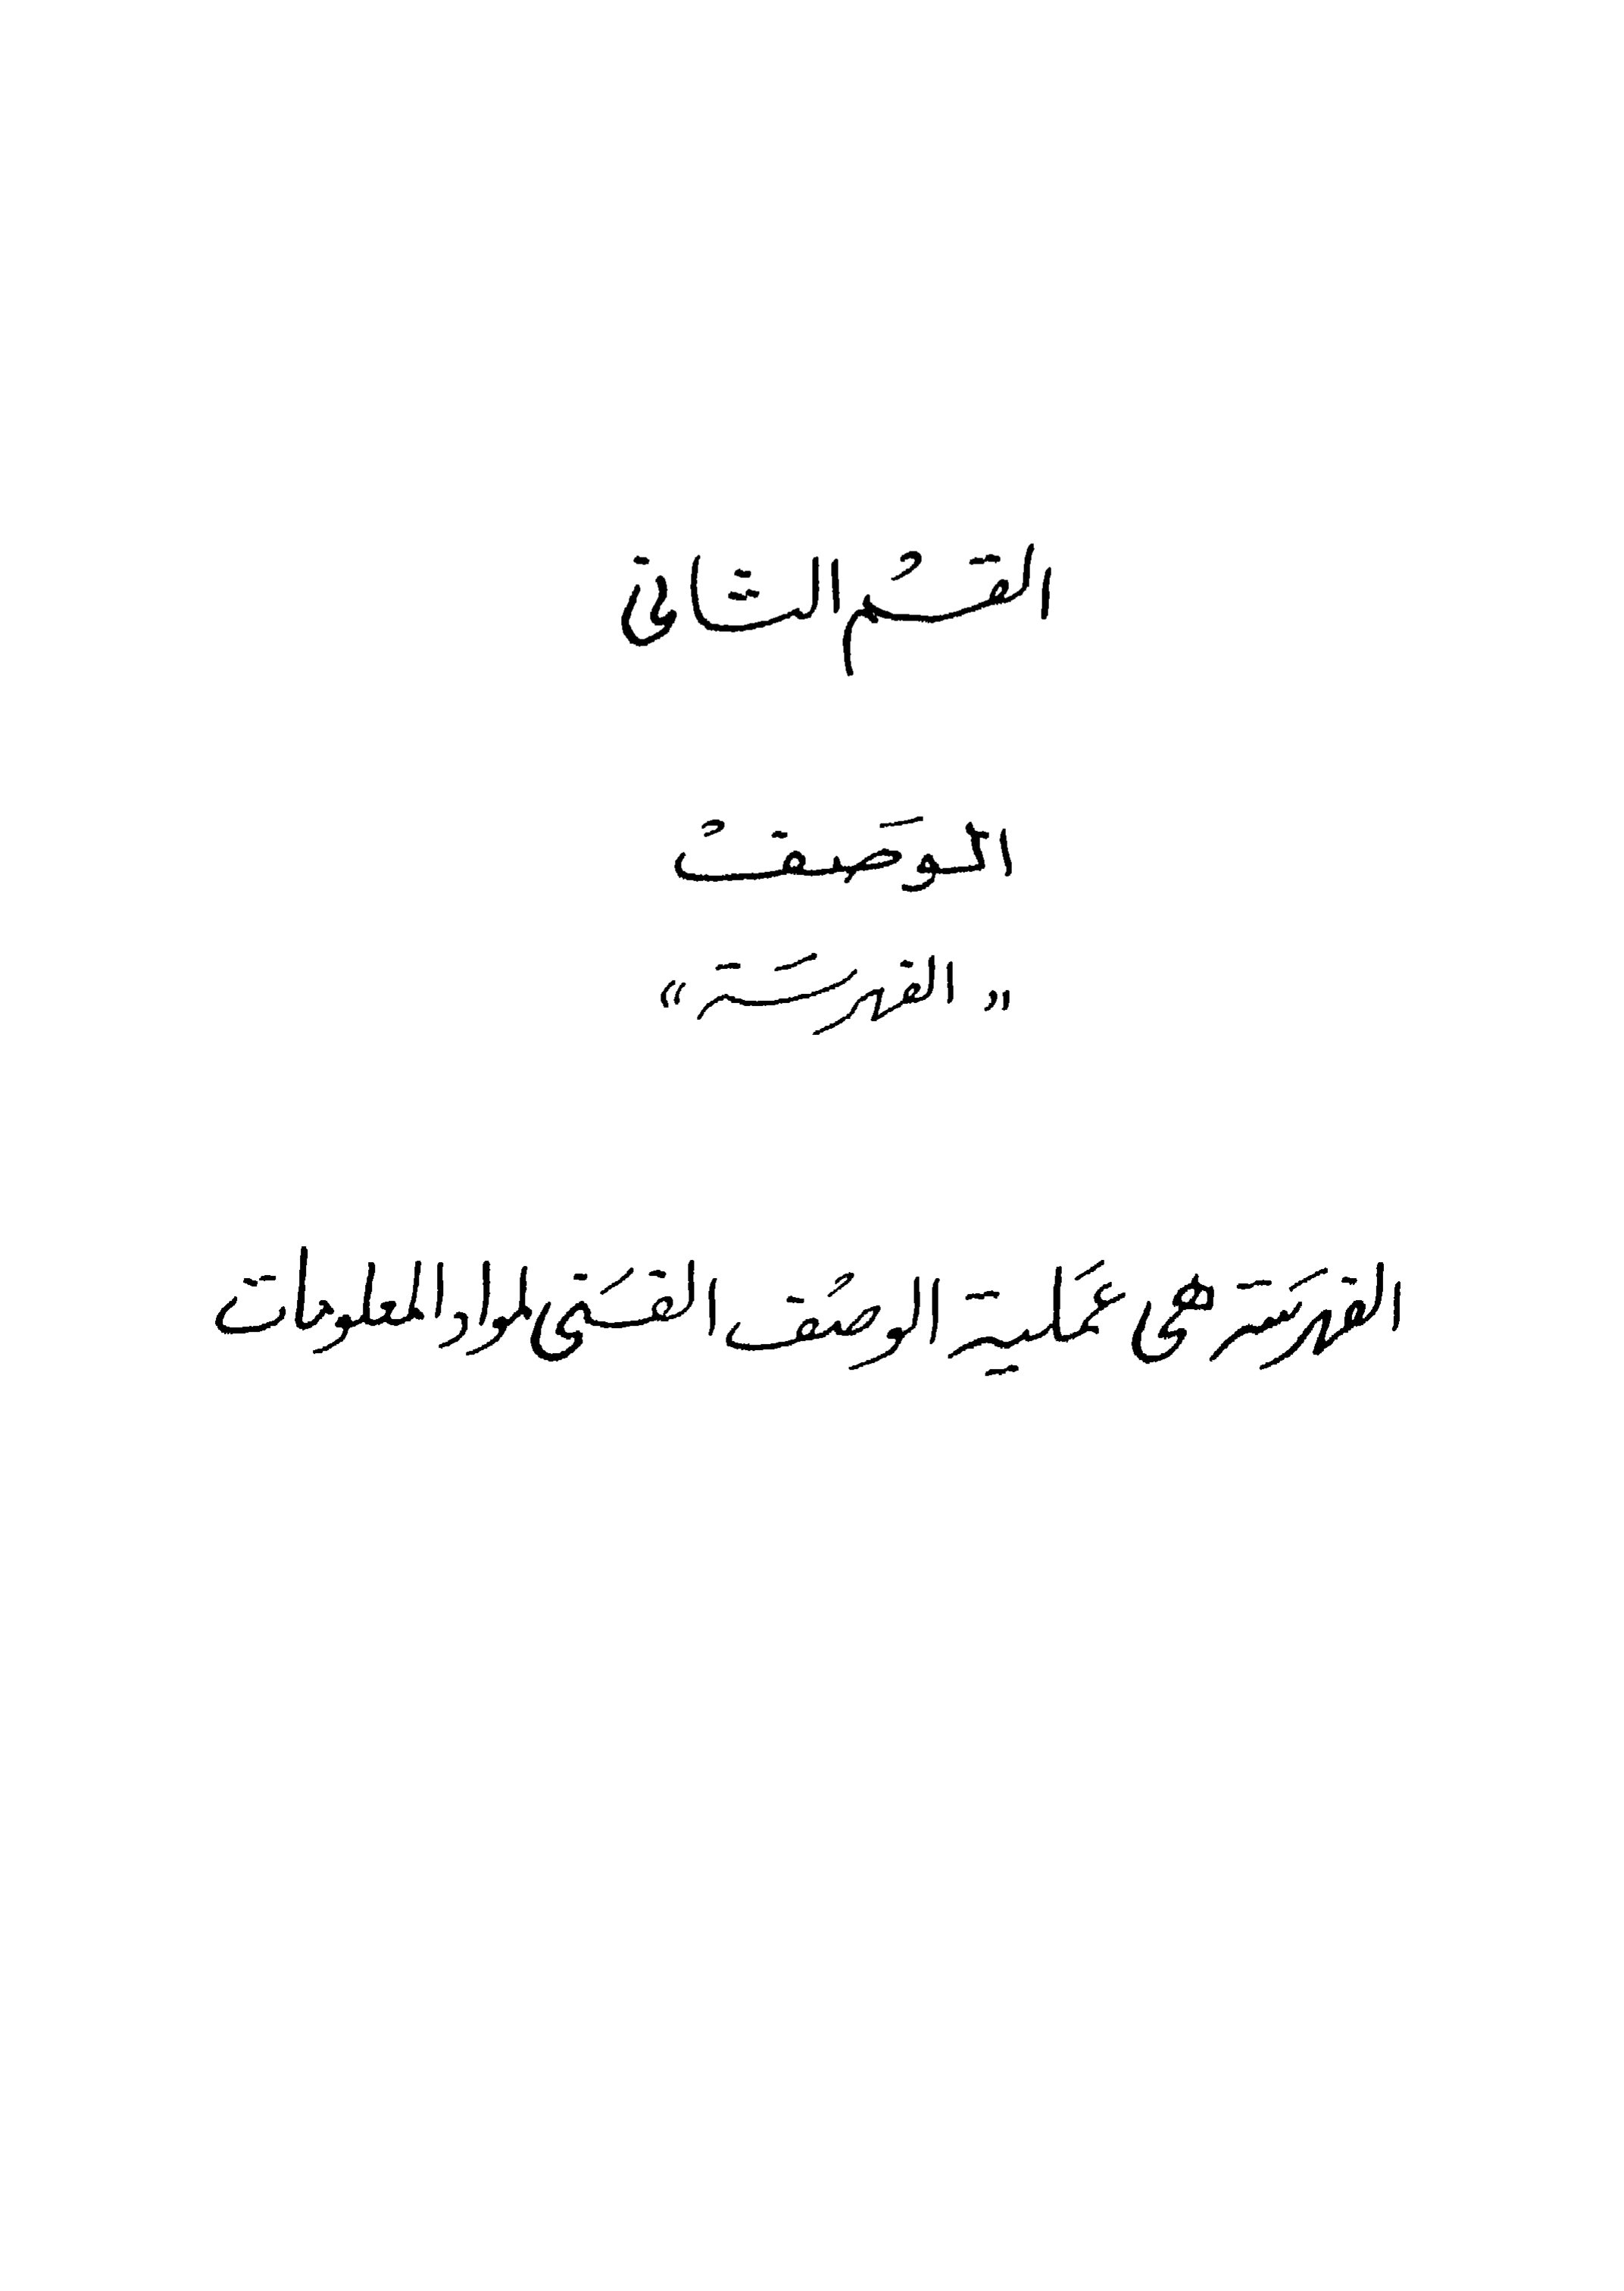 القسْم الثاني
الوَصف
« الفهرسَة »
الفهرسَة هى عمَلية الوصْف الفنَى لمواد المعلومات